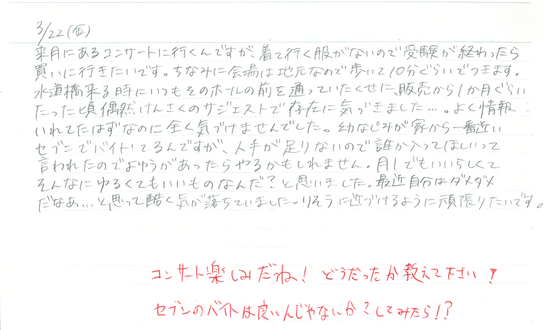 3/22(金)
来月にあるコンサートに行くんですが、着て行く服がないので受験が終わったら
買いに行きたいです。ちなみに会場は地元なので歩いて10分ぐらいでつきます。
水道橋来る時にいつもそのホールの前を通っていたくせに、販売から1か月ぐらい
たった頃偶然けんさくのサジェストで存在に気づきました…。よく情報
いれてたはずなのに全く気づけませんでした。幼なじみが家から一番近い
セブンでバイトしてるんですが、人手が足りないので誰か入ってほしいって
言われたのでよゆうがあったらやるかもしれません。月1でもいいらしくて
そんなにゆるくてもいいものなんだ?と思いました。最近自分はダメダメ
だなあ…と思って酷く気が落ちていました。りそうに近づけるように頑張りたいです。
コンサート楽しみだね! どうだったか教えて下さい!
セブンのバイトは良いんじゃないか?してみたら!?